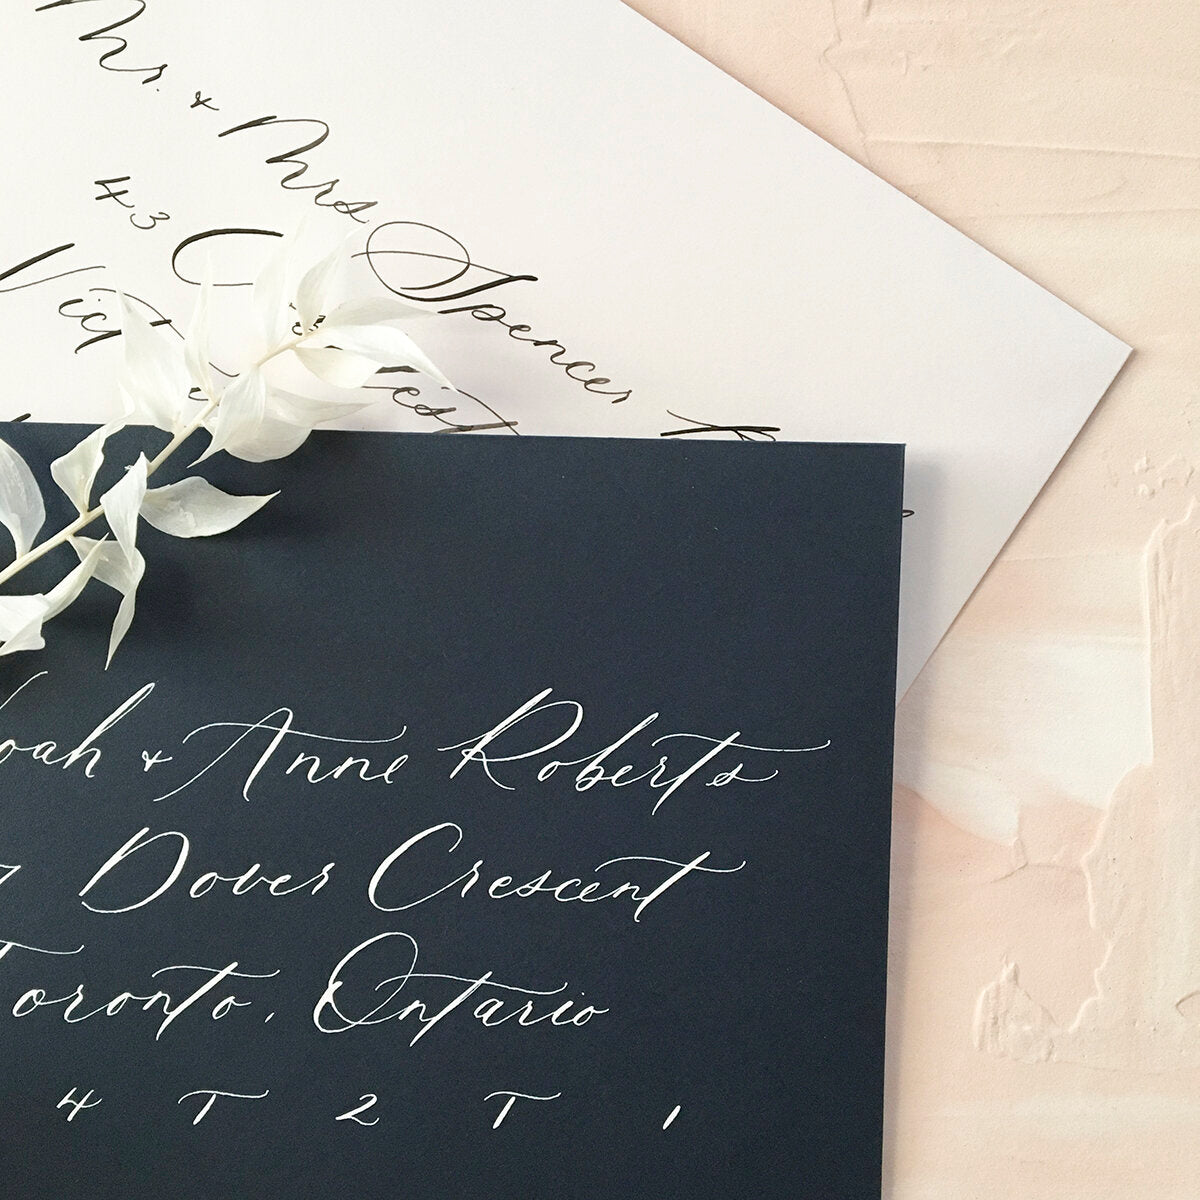 Mr. & Mrs Spencer
43
Noah & Anne Roberts
7 Dover Crescent
Toronto, Ontario
4 T 2 T 1